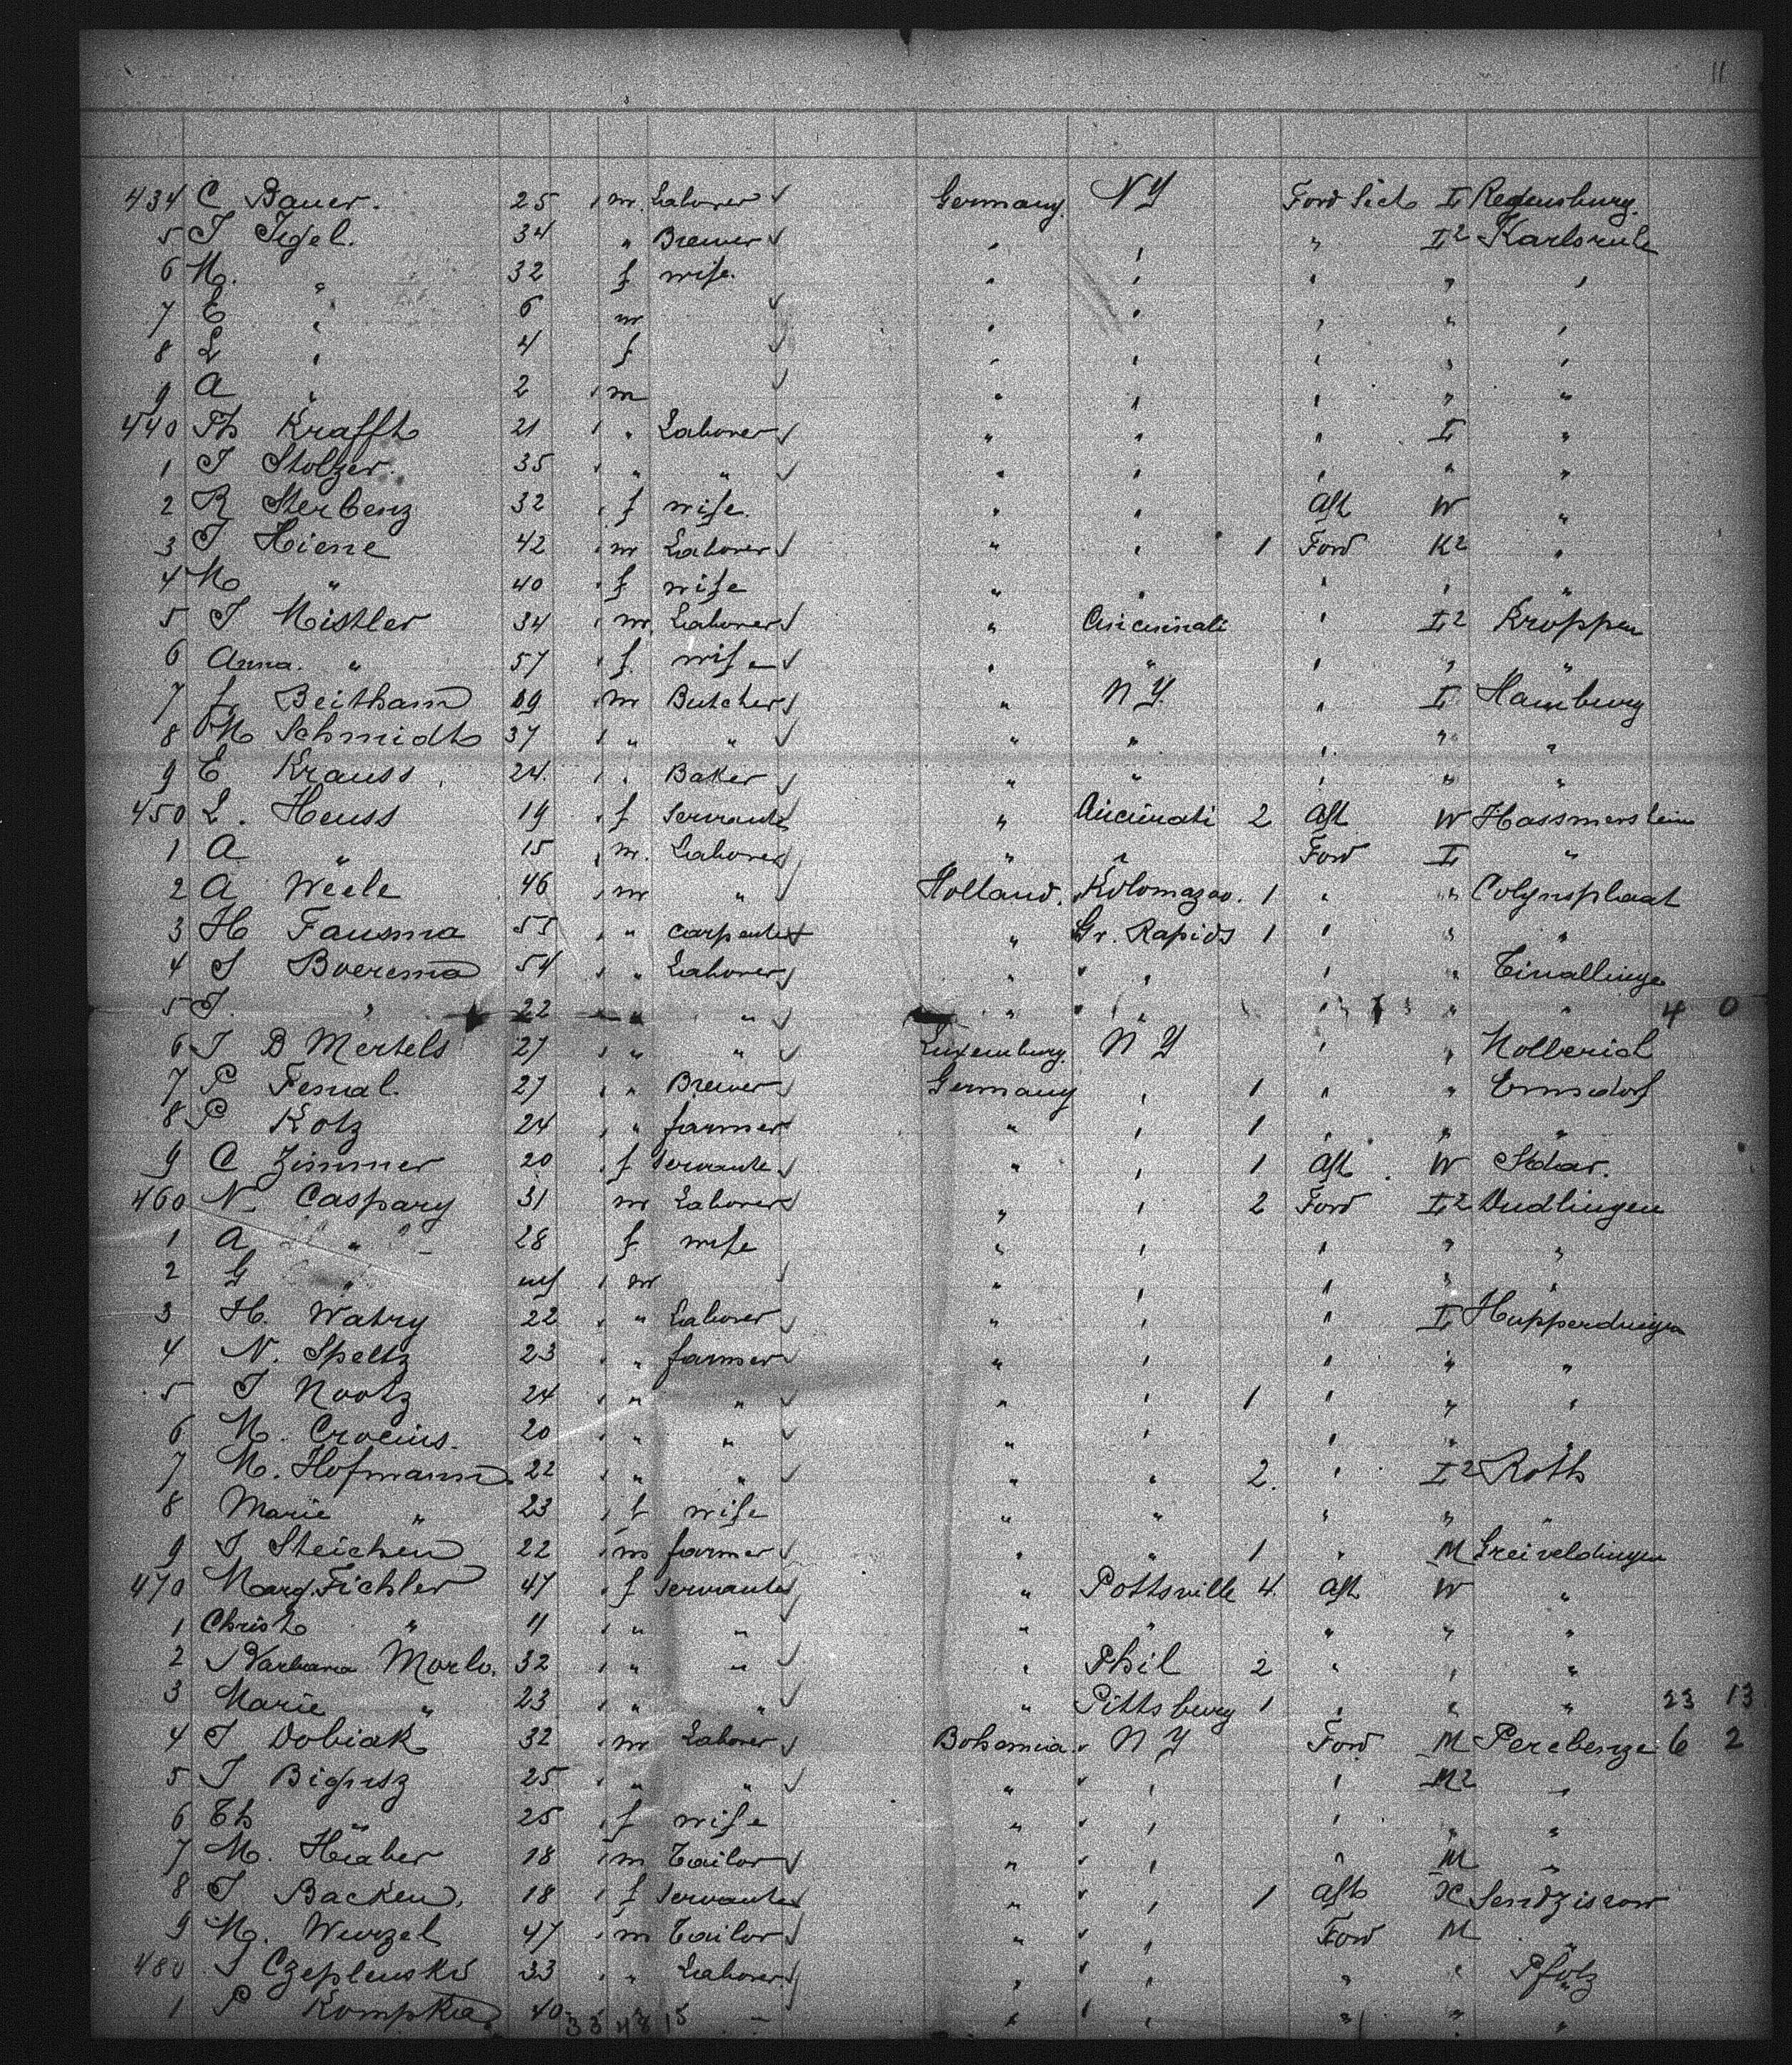 11
434 C Bauer. 25 m. Laborer Germany. NY Ford Sich I Regensburg.
5 J Jegel. 34 " Brewer " " " I2 Karlsruhe
6 M. " 32 f wife. " " " " "
7 E " 6 m " " " " "
8 L " 4 f " " " " "
9 A " 2 m " " " " "
440 Th Krafft 21 " Laborer " " " I "
1 J Stolzer. 35 " " " " " " "
2 R Sterbenz 32 f wife. " " Aft W "
3 J Hiene 42 m Laborer " " 1 Ford K2 "
4 M " 40 f wife " " " " "
5 J Mistler 34 m. Laborer " Cincinati " I2 Kroppen
6 Anna. " 57 f. wife " " " " "
7 Beitham 19 m Butcher " N Y. " I Hamburg
8 M Schmidt 37 " " " " " " "
9 E Krauss 24. " Baker " " " " "
450 L. Heuss 19 f Servant " Cincinati 2 Aft W Hassmerslein
1 A " 15 m. Laborer " " Ford I "
2 A Weele 46 m " Holland. Kolomazoo. 1 " " Colynsplaat
3 H Fausma 55 " Carpenter " Gr. Rapids 1 " " "
4 J Boerema 54 " Laborer " " " " Einallinge
5 J. " 22 " " " " " " " 4 0
6 J B Mertels 27 " " Luxemburg. N Y " " Holberich
7 P Fesnal. 27 " Brewer Germany " 1 " " Ernsdorf
8 P Kotz 24 " farmer " " 1 " " "
9 C Zimmer 20 f Servante " " 1 Aft W
460 N. Caspary 31 m Laborer " " 2 Ford I2 Dudlingen
1 A " 28 f wife " " " " "
2 G " inf m " " " " "
3 H. Watry 22 " Laborer " " " I Hupperdingen
4 N. Speltz 23 " farmer " " " " "
5 J Nootz 24 " " " " 1 " " "
6 M. Crocius. 20 " " " " " " "
7 M. Hofmann. 22 " " " " 2. " I2 Roth
8 Marie " 23 f wife " " " " "
9 J Steichen 22 m farmer " " 1 " M Greiveldingen
470 Marg. Fichler 47 f Servante " Pottsville 4. Aft W "
1 Christ " 11 " " " " " " "
2 Barbara Morlo. 32 " " " Phil 2 " " "
3 Marie " 23 " " " Pittsburg 1 " " " 23 13
4 J Dobiak 32 m Laborer Bohemia. N Y Ford M Perebenze 6 2
5 J 25 " " " " " M2 "
6 Th " 25 f wife " " " " "
7 M. Haber 18 m Tailor " " " M "
8 J Backen. 18 f Servante " " 1 Aft Sendziscow
9 M. Wurzel 47 m Tailor " " Ford M "
480 J Czeplenski 33 " Laborer. " " " " Pfolz
1 P Kompka 40 " " " " "
33 48 15